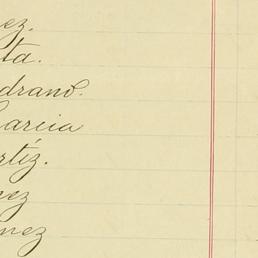 ez.
ta.
drano.
Garcia
rtíz.
nez
nez